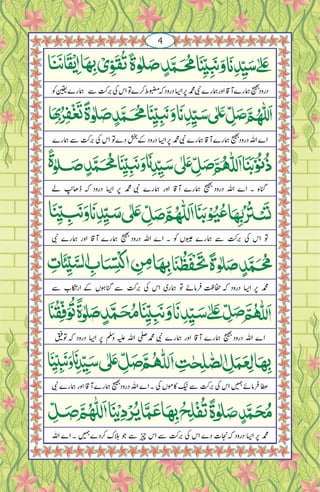 4
عَلٰى سَيِّدِنَا وَنَبِيِّنَا مُحَمَّدٍ صَلٰوةً تُقَوِّىْ بِهَا اِيْقَانَنَا
درود بھیج ہمارے آقا اور ہمارے نبی محمد پر ایسا درود کہ مضبوط کرے تو اس کی برکت سے ہمارے یقین کو
اَللّٰهُمَّ صَلِّ عَلٰى سَيِّدِنَا وَنَبِيِّنَا مُحَمَّدٍ صَلٰوةً تَغْفِرُ بِهَا
اے اللہ درود بھیج ہمارے آقا اور ہمارے نبی محمد پر ایسا درود کہ بخش دے تو اس کی برکت سے ہمارے
ذُنُوْبَنَا اَللّٰهُمَّ صَلِّ عَلٰى سَيِّدِنَا وَنَبِيِّنَا مُحَمَّدٍ صَلٰوةً
گناہ ۔ اے اللہ درود بھیج ہمارے آقا اور ہمارے نبی محمد پر ایسا درود کہ ڈھانپ لے
تَسْتُرُ بِهَا عُيُوْبَنَا اَللّٰهُمَّ صَلِّ عَلٰى سَيِّدِنَا وَنَبِيِّنَا
تو اس کی برکت سے ہمارے عیبوں کو ۔ اے اللہ درود بھیج ہمارے آقا اور ہمارے نبی
مُحَمَّدٍ صَلٰوةً تَحْفَظُنَا بِهَا مِنِ اكْتِسَابِ السَّيِّئَاتِ
محمد پر ایسا درود کہ حفاظت فرمائے تو ہماری اس کی برکت سے گناہوں کے ارتکاب سے
اَللّٰهُمَّ صَلِّ عَلٰى سَيِّدِنَا وَنَبِيِّنَا مُحَمَّدٍ صَلٰوةً تُوَفِّقُنَا
اے اللہ درود بھیج ہمارے آقا اور ہمارے نبی محمد صلی اللہ علیہ وسلم پر ایسا درود کہ تو توفیق
بِهَا لِعَمَلِ الصّٰلِحٰتِ اَللّٰهُمَّ صَلِّ عَلٰى سَيِّدِنَا وَنَبِيِّنَا
عطا فرمائے ہمیں اس کی برکت سے نیک کاموں کی ۔ اے اللہ درود بھیج ہمارے آقا اور ہمارے نبی
مُحَمَّدٍ صَلٰوةً تُفْلِحُ بِهَا عَمَّا يُرْدِيْنَا اَللّٰهُمَّ صَلِّ
محمد پر ایسا درود کہ نجات دے اس کی برکت سے اس چیز سے جو ہلاک کر دے ہمیں ۔ اے اللہ